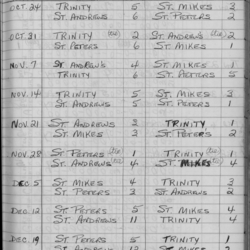 OCT. 24 TRINITY 5 ST. MIKES 3
ST. ANDREWS 6 ST. PETERS 2
OCT. 31 TRINITY (TIE) 2 ST. ANDREWS (TIE) 2
ST. PETERS 6 ST. MIKES 1
NOV. 7 ST ANDREW'S 4 ST. MIKES 1
TRINITY 6 ST. PETERS 5
NOV. 14 TRINITY 5 ST. MIKES 3
ST. ANDREWS 5 ST. PETERS 1
NOV. 21 ST. ANDREWS 3 TRINITY 1
ST. MIKES 3 ST. PETERS 2
NOV. 28 ST. PETERS (TIE) 1 TRINITY (TIE) 1
ST. ANDREWS (TIE) 4 ST. MIKES (TIE) 4
DEC. 5 ST. MIKES 4 TRINITY 3
ST. PETERS 3 ST. ANDREWS 2
DEC. 12 ST. PETERS 5 ST. MIKES 4
ST. ANDREWS 11 TRINITY 4
DEC. 19 ST. PETERS 5 TRINITY 1